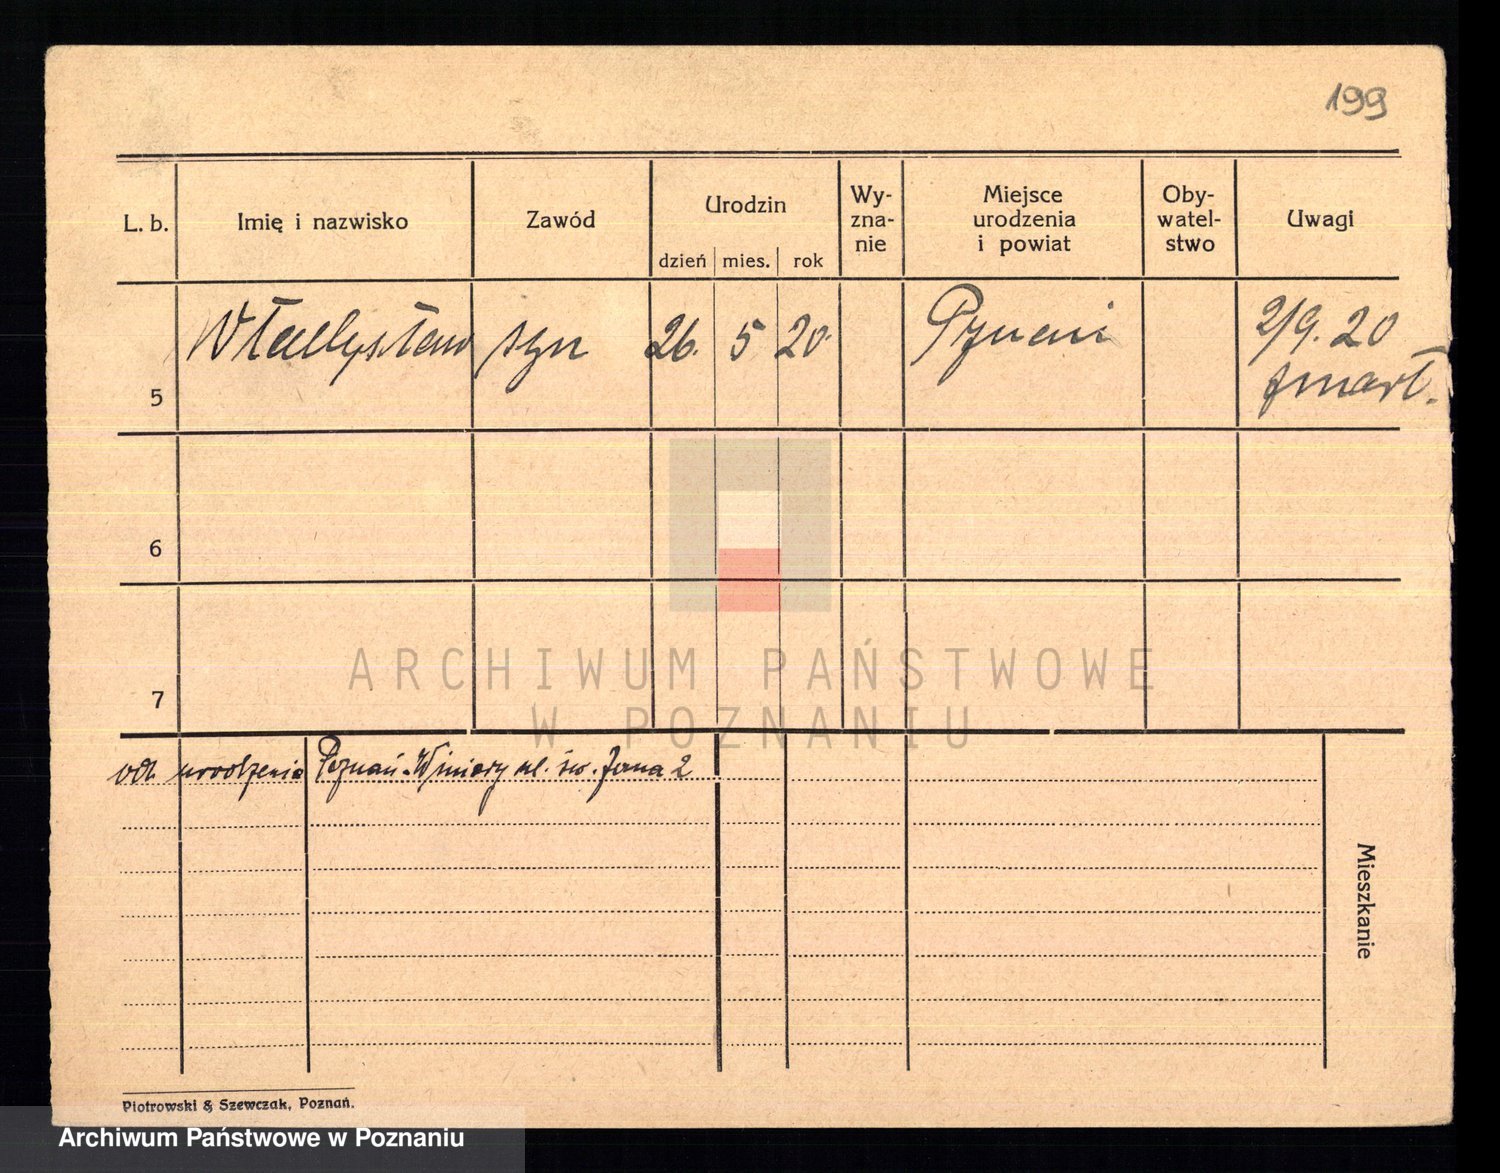 199
L. b.
Imię i nazwisko
Zawód
Urodzin
dzień
mies.
rok
Wy-
zna-
nie
Miejsce
urodzenia
i powiat
Oby-
watel-
stwo
Uwagi
5
Władysław
syn
26.
5
20.
Poznań
2/9. 20
zmarł.
6
7
ARCHIWUM PAŃSTWOWE
W POZNANIU
od urodzenia Poznań-Winiary ul. św. Jana 2
Mieszkanie
Piotrowski & Szewczak, Poznań.
Archiwum Państwowe w Poznaniu